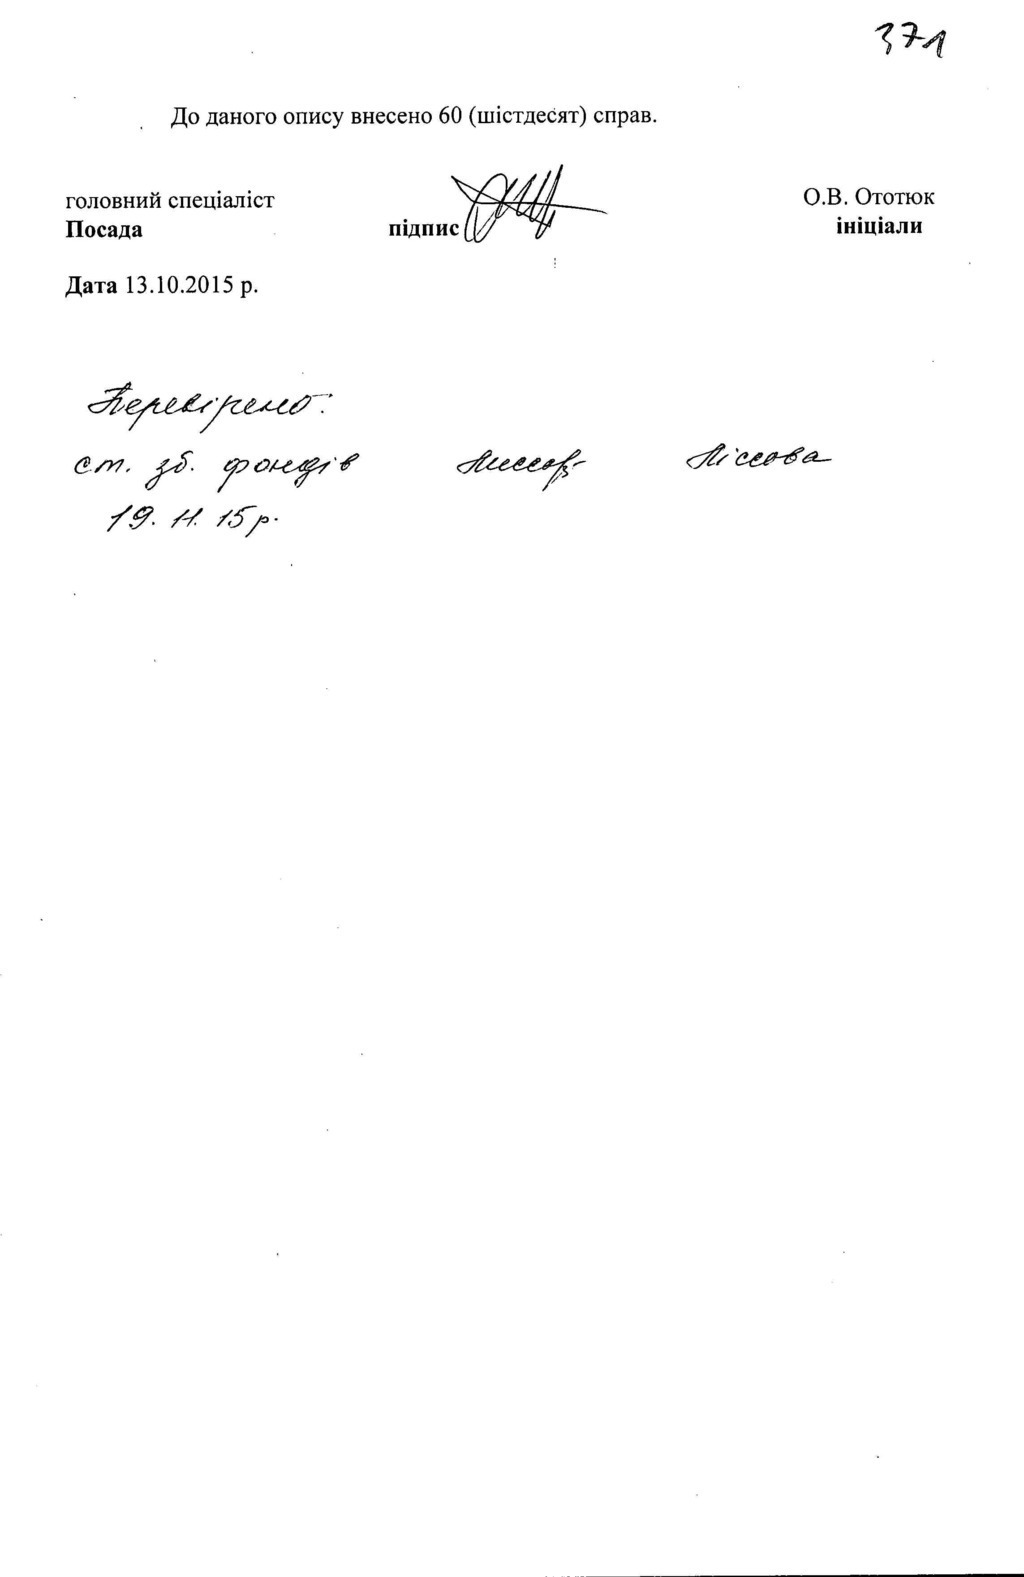 371
До даного опису внесено 60 (шістдесят) справ.
головний спеціаліст О.В. Ототюк
Посада підпис ініціали
Дата 13.10.2015 р.
Перевірено:
ст. зб. фондів Ліссова
19. 11. 15 р.